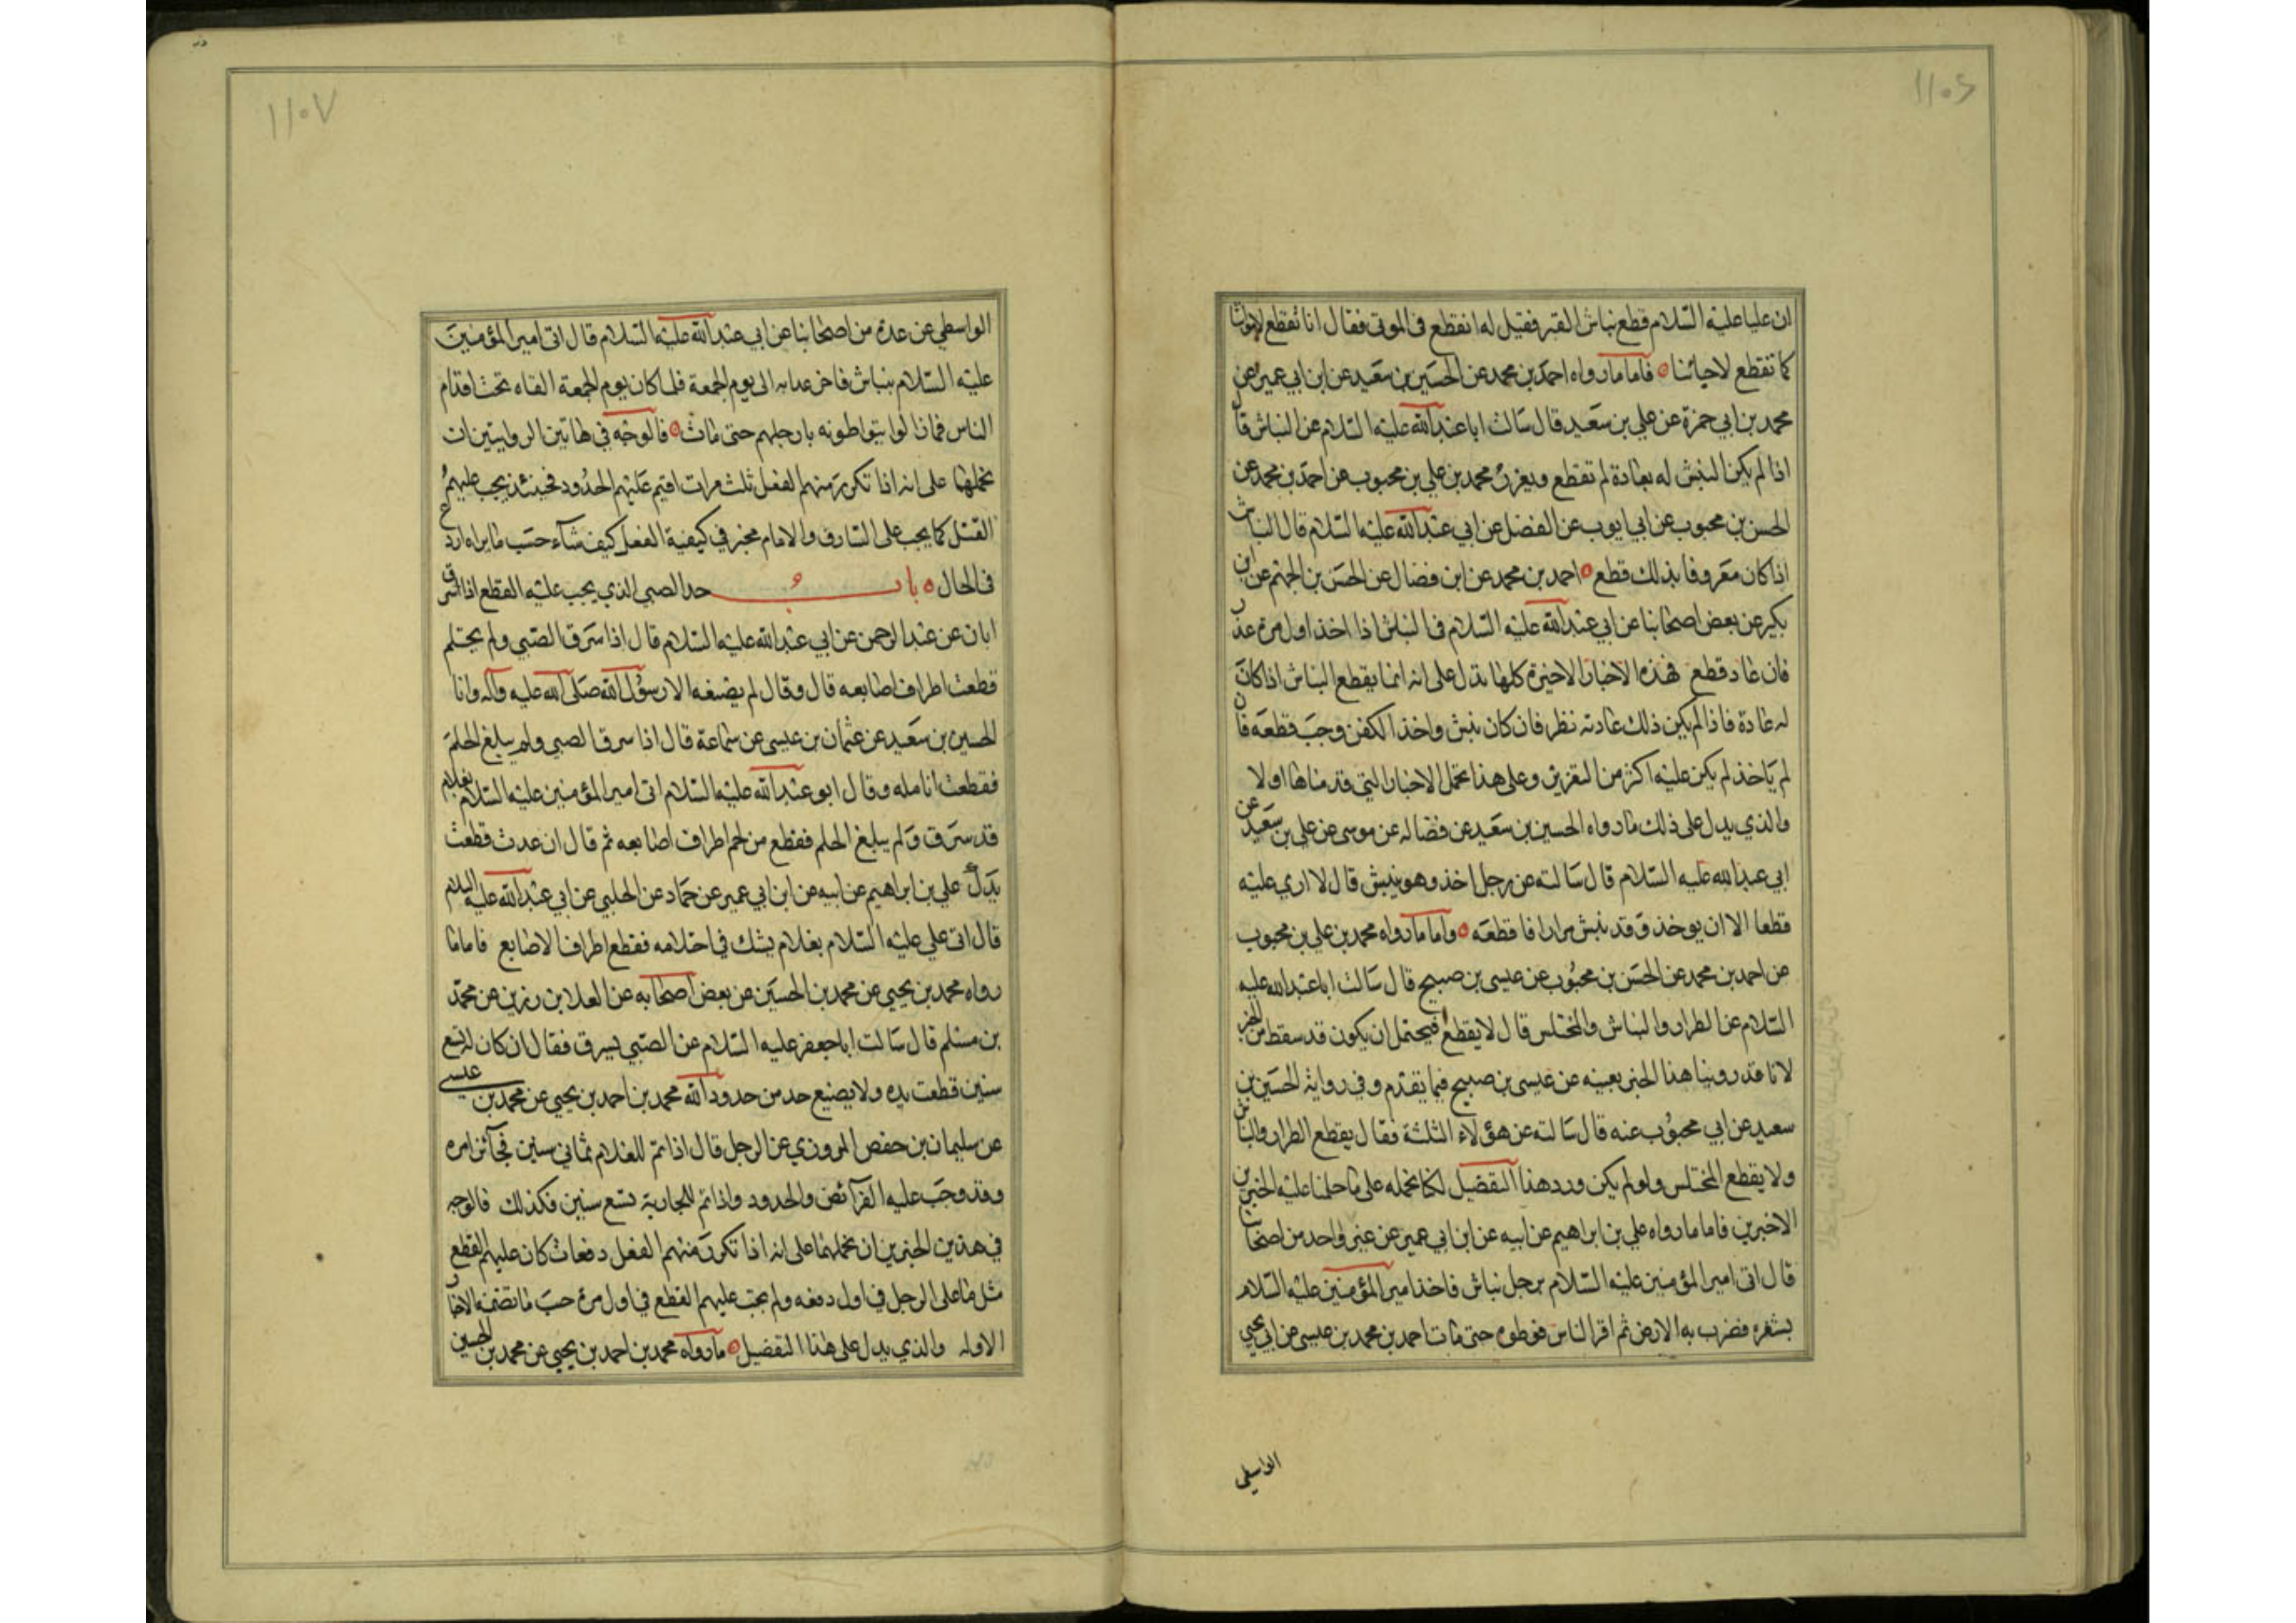 ١١٠٦
ان عليا عليه السلام قطع نباش القبر فقيل له انقطع في الموتى فقال انا نقطع لامواتنا
كما نقطع لاحيائنا فاما ما رواه احمد بن محمد عن الحسين بن سعيد عن ابن ابي عمير عن
محمد بن ابي حمزة عن علي بن سعيد قال سالت ابا عبد الله عليه السلام عن النباش قال
اذا لم يكن النبش له بعادة لم تقطع ويعزر محمد بن علي بن محبوب عن احمد بن محمد عن
الحسن بن محبوب عن ابي ايوب عن الفضل عن ابي عبد الله عليه السلام قال النباش
اذا كان معروفا بذلك قطع احمد بن محمد عن ابن فضال عن الحسن بن الجهم عن ابن
بكير عن بعض اصحابنا عن ابي عبد الله عليه السلام في النباش اذا اخذ اول مرة عزر
فان عاد قطع فهذه الاخبار الاخيرة كلها تدل على انه انما يقطع النباش اذا كان
له عادة فاذا لم يكن ذلك عادته نظر فان كان نبش واخذ الكفن وجب قطعه فان
لم ياخذ لم يكن عليه اكثر من التعزير وعلى هذا تحمل الاخبار التي قدمناها اولا
والذي يدل على ذلك ما رواه الحسين بن سعيد عن فضاله عن موسى عن علي بن سعيد عن
ابي عبد الله عليه السلام قال سالته عن رجل اخذ وهو ينبش قال لا ارى عليه
قطعا الا ان يوخذ وقد نبش مرارا فاقطعه واما ما رواه محمد بن علي بن محبوب
عن احمد بن محمد عن الحسن بن محبوب عن عيسى بن صبيح قال سالت ابا عبد الله عليه
السلام عن الطرار والنباش والمختلس قال لا يقطع فيحتمل ان يكون قد سقط من الخبر
لانا قد روينا هذا الخبر بعينه عن عيسى بن صبيح فيما تقدم وفي رواية الحسين بن
سعيد عن ابي محبوب عنه قال سالته عن هؤلاء الثلثة فقال يقطع الطرار والنباش
ولا يقطع المختلس ولو لم يكن ورد هذا التفضيل لكنا نحمله على ما حملنا عليه الخبرين
الاخيرين فاما ما رواه علي بن ابراهيم عن ابيه عن ابن ابي عمير عن غير واحد من اصحابنا
قال اتى امير المؤمنين عليه السلام برجل نباش فاخذ امير المؤمنين عليه السلام
بشعره فضرب به الارض ثم امر الناس فوطوه حتى مات احمد بن محمد بن عيسى عن ابي يحيى
الواسطي
١١٠٧
الواسطي عن عدة من اصحابنا عن ابي عبد الله عليه السلام قال اتى امير المؤمنين
عليه السلام بنباش فاخر عذابه الى يوم الجمعة فلما كان يوم الجمعة القاه تحت اقدام
الناس فما زالوا يتواطونه بارجلهم حتى مات فالوجه في هاتين الروايتين ان
نحملها على انه اذا تكرر منهم الفعل ثلث مرات اقيم عليهم الحدود فحينئذ يجب عليهم
القتل كما يجب على السارق والامام مخير في كيفية الفعل كيف شآء حسب ما يراه اردع
في الحال باب حد الصبي الذي يجب عليه القطع اذا سرق
ابان عن عبد الرحمن عن ابي عبد الله عليه السلام قال اذا سرق الصبي ولم يحتلم
قطعت اطراف اصابعه قال وقال لم يصنعه الا رسول الله صلى الله عليه وآله وانا
الحسين بن سعيد عن عثمان بن عيسى عن سماعة قال اذا سرق الصبي ولم يبلغ الحلم
فقطعت انامله وقال ابو عبد الله عليه السلام اتى امير المؤمنين عليه السلام بغلام
قد سرق ولم يبلغ الحلم فقطع من لحم اطراف اصابعه ثم قال ان عدت قطعت
يدك علي بن ابراهيم عن ابيه عن ابن ابي عمير عن حماد عن الحلبي عن ابي عبد الله عليه السلام
قال اتى علي عليه السلام بغلام يشك في احتلامه فقطع اطراف الاصابع فاما ما
رواه محمد بن يحيى عن محمد بن الحسين عن بعض اصحابه عن العلا بن رزين عن محمد
بن مسلم قال سالت ابا جعفر عليه السلام عن الصبي يسرق فقال ان كان له تسع
سنين قطعت يده ولا يضيع حد من حدود الله محمد بن احمد بن يحيى عن محمد بن عيسى
عن سليمان بن حفص المروزي عن الرجل قال اذا تم للغلام ثماني سنين فجآئز امره
وقد وجب عليه الفرآئض والحدود واذا تم للجارية تسع سنين فكذلك فالوجه
في هذين الخبرين ان نحملهما على انه اذا تكرر منهم الفعل دفعات كان عليهم القطع
مثل ما على الرجل في اول دفعه ولم يجب عليهم القطع في اول مرة حسب ما تضمنه الاخبار
الاوله والذي يدل على هذا التفضيل ما رواه محمد بن احمد بن يحيى عن محمد بن الحسين